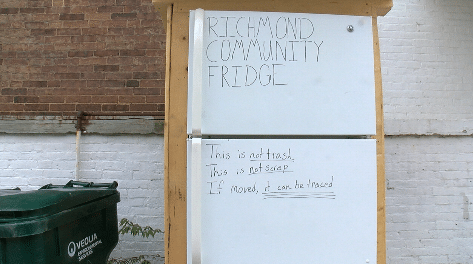 RICHMOND
COMMUNITY
FRIDGE
This is not trash
This is not scrap
If moved, it can be traced
VEOLIA
ENVIRONMENTAL
SERVICES